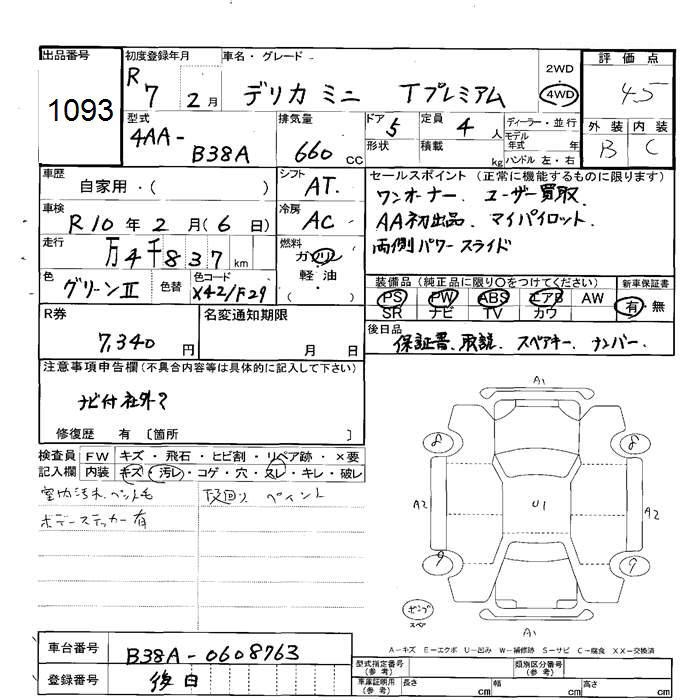 出品番号
1093
初度登録年月
R 7 年 2 月
車名・グレード
デリカ ミニ Tプレミアム
2WD
4WD
評価点
4.5
型式
4AA-
B38A
排気量
660 cc
ドア 5
形状
定員 4 人
積載 kg
ディーラー・並行
モデル
年式 年
ハンドル 左・右
外装 内装
B C
車歴
自家用・( )
シフト
AT.
車検
R 10 年 2 月 ( 6 日 )
冷房
AC
走行
万 4 千 8 3 7 km
燃料
ガソリン
軽油
( )
色
グリーンⅡ
色替
色コード
X42/F29
R券
7,340 円
名変通知期限
月 日
セールスポイント (正常に機能するものに限ります)
ワンオーナー. ユーザー買取.
AA初出品. マイパイロット.
両側パワースライド
装備品 (純正品に限り○をつけてください)
PS PW ABS エアB AW
SR ナビ TV カワ
新車保証書
有・無
後日品
保証書、取説、スペアキー、ナンバー.
注意事項申告欄 (不具合内容等は具体的に記入して下さい)
ナビ付社外?
修復歴 有 〔箇所 〕
検査員 FW キズ・飛石・ヒビ割・リペア跡・×要
記入欄 内装 キズ・汚レ・コゲ・穴・スレ・キレ・破レ
室内汚れ ペット毛
下回り ペイント
ボデーステッカー有
A1
8 8
A2 U1 A2
9 9
A1
A-キズ E-エクボ U-凹み W-補修跡 S-サビ C-腐食 XX-交換済
車台番号
B38A-0608763
登録番号
後日
型式指定番号
(参考)
類別区分番号
(参考)
車庫証明用
(参考)
長さ cm 幅 cm 高さ cm